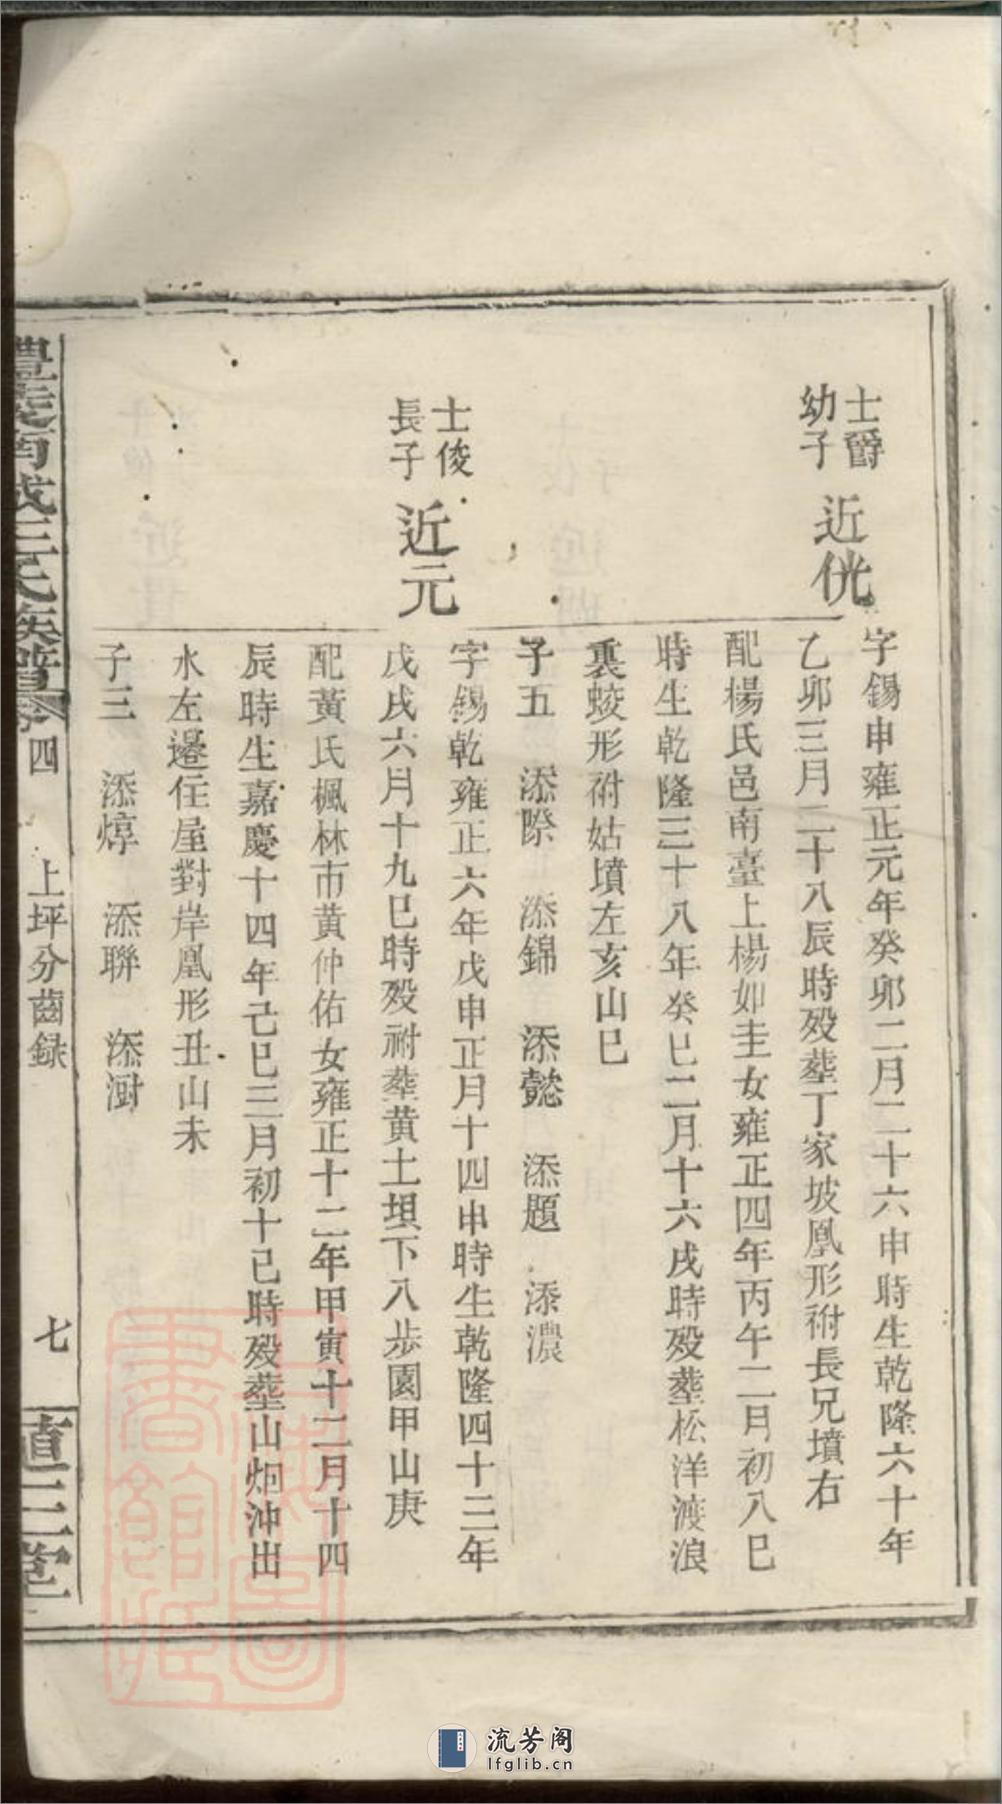 士爵
幼子
近侊
字錫申雍正元年癸卯二月二十六申時生乾隆六十年
乙卯三月二十八辰時歿塟丁家坡凰形祔長兄墳右
配楊氏邑南臺上楊如圭女雍正四年丙午二月初八巳
時生乾隆三十八年癸巳二月十六戌時歿塟松洋渡浪
裏蛟形祔姑墳左亥山巳
子五 添際 添錦 添懿 添題 添濃
士俊
長子
近元
字錫乾雍正六年戊申正月十四申時生乾隆四十三年
戊戌六月十九巳時歿祔塟黄土垻下八步園甲山庚
配黃氏楓林市黄仲佑女雍正十二年甲寅十二月十四
辰時生嘉慶十四年己巳三月初十巳時歿塟山炟沖出
水左邊住屋對岸凰形丑山未
子三 添焞 添聯 添澍
南城王氏族譜 卷四 上坪分齒録 七 三
上海圖書館藏
流芳阁
lfglib.cn